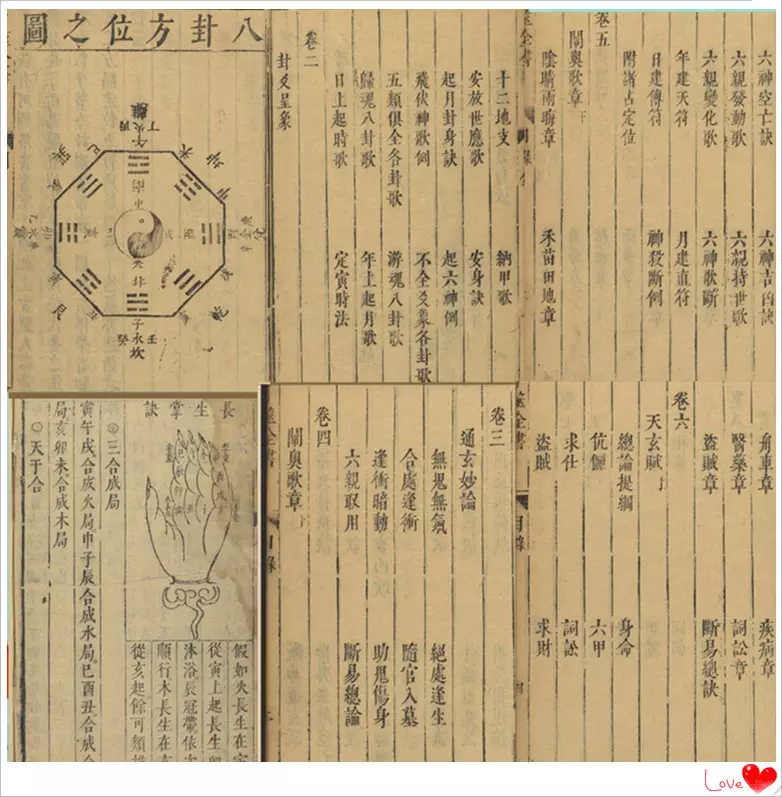 八卦方位之圖
離
丁火丙
午
南
北
子
壬水癸
坎
乾
艮
巽
卷二
卦爻呈象
十二地支
納甲歌
安放世應歌
安身訣
起月卦身訣
起六神例
飛伏神歌例
不全爻象各卦歌
五類俱全各卦歌
游魂八卦歌
歸魂八卦歌
年上起月歌
日上起時歌
定寅時法
六神空亡訣
六神吉凶訣
六親發動歌
六親持世歌
六親變化歌
六神歌斷
年建天符
月建直符
日建傳符
神殺斷例
附諸占定位
卷五
闡奧歌章下
陰晴雨晦章
禾苗田地章
筮全書
目錄
長生掌訣
假如火長生在寅
從寅上起長生卯
沐浴辰冠帶依次
順行木長生在亥
從亥起餘可類推
◎三合成局
寅午戌合成火局申子辰合成水局巳酉丑合成金
局亥卯未合成木局
○天干合
卷三
通玄妙論
無鬼無氣
絕處逢生
合處逢衝
隨官入墓
逢衝暗動
助鬼傷身
六親取用
斷易總論
卷四
闡奧歌章上
筮全書
目錄
舟車章
疾病章
醫藥章
詞訟章
盜賊章
斷易總訣
卷六
天玄賦上
總論提綱
身命
伉儷
六甲
求仕
詞訟
盜賊
求財
筮全書
目錄
Love